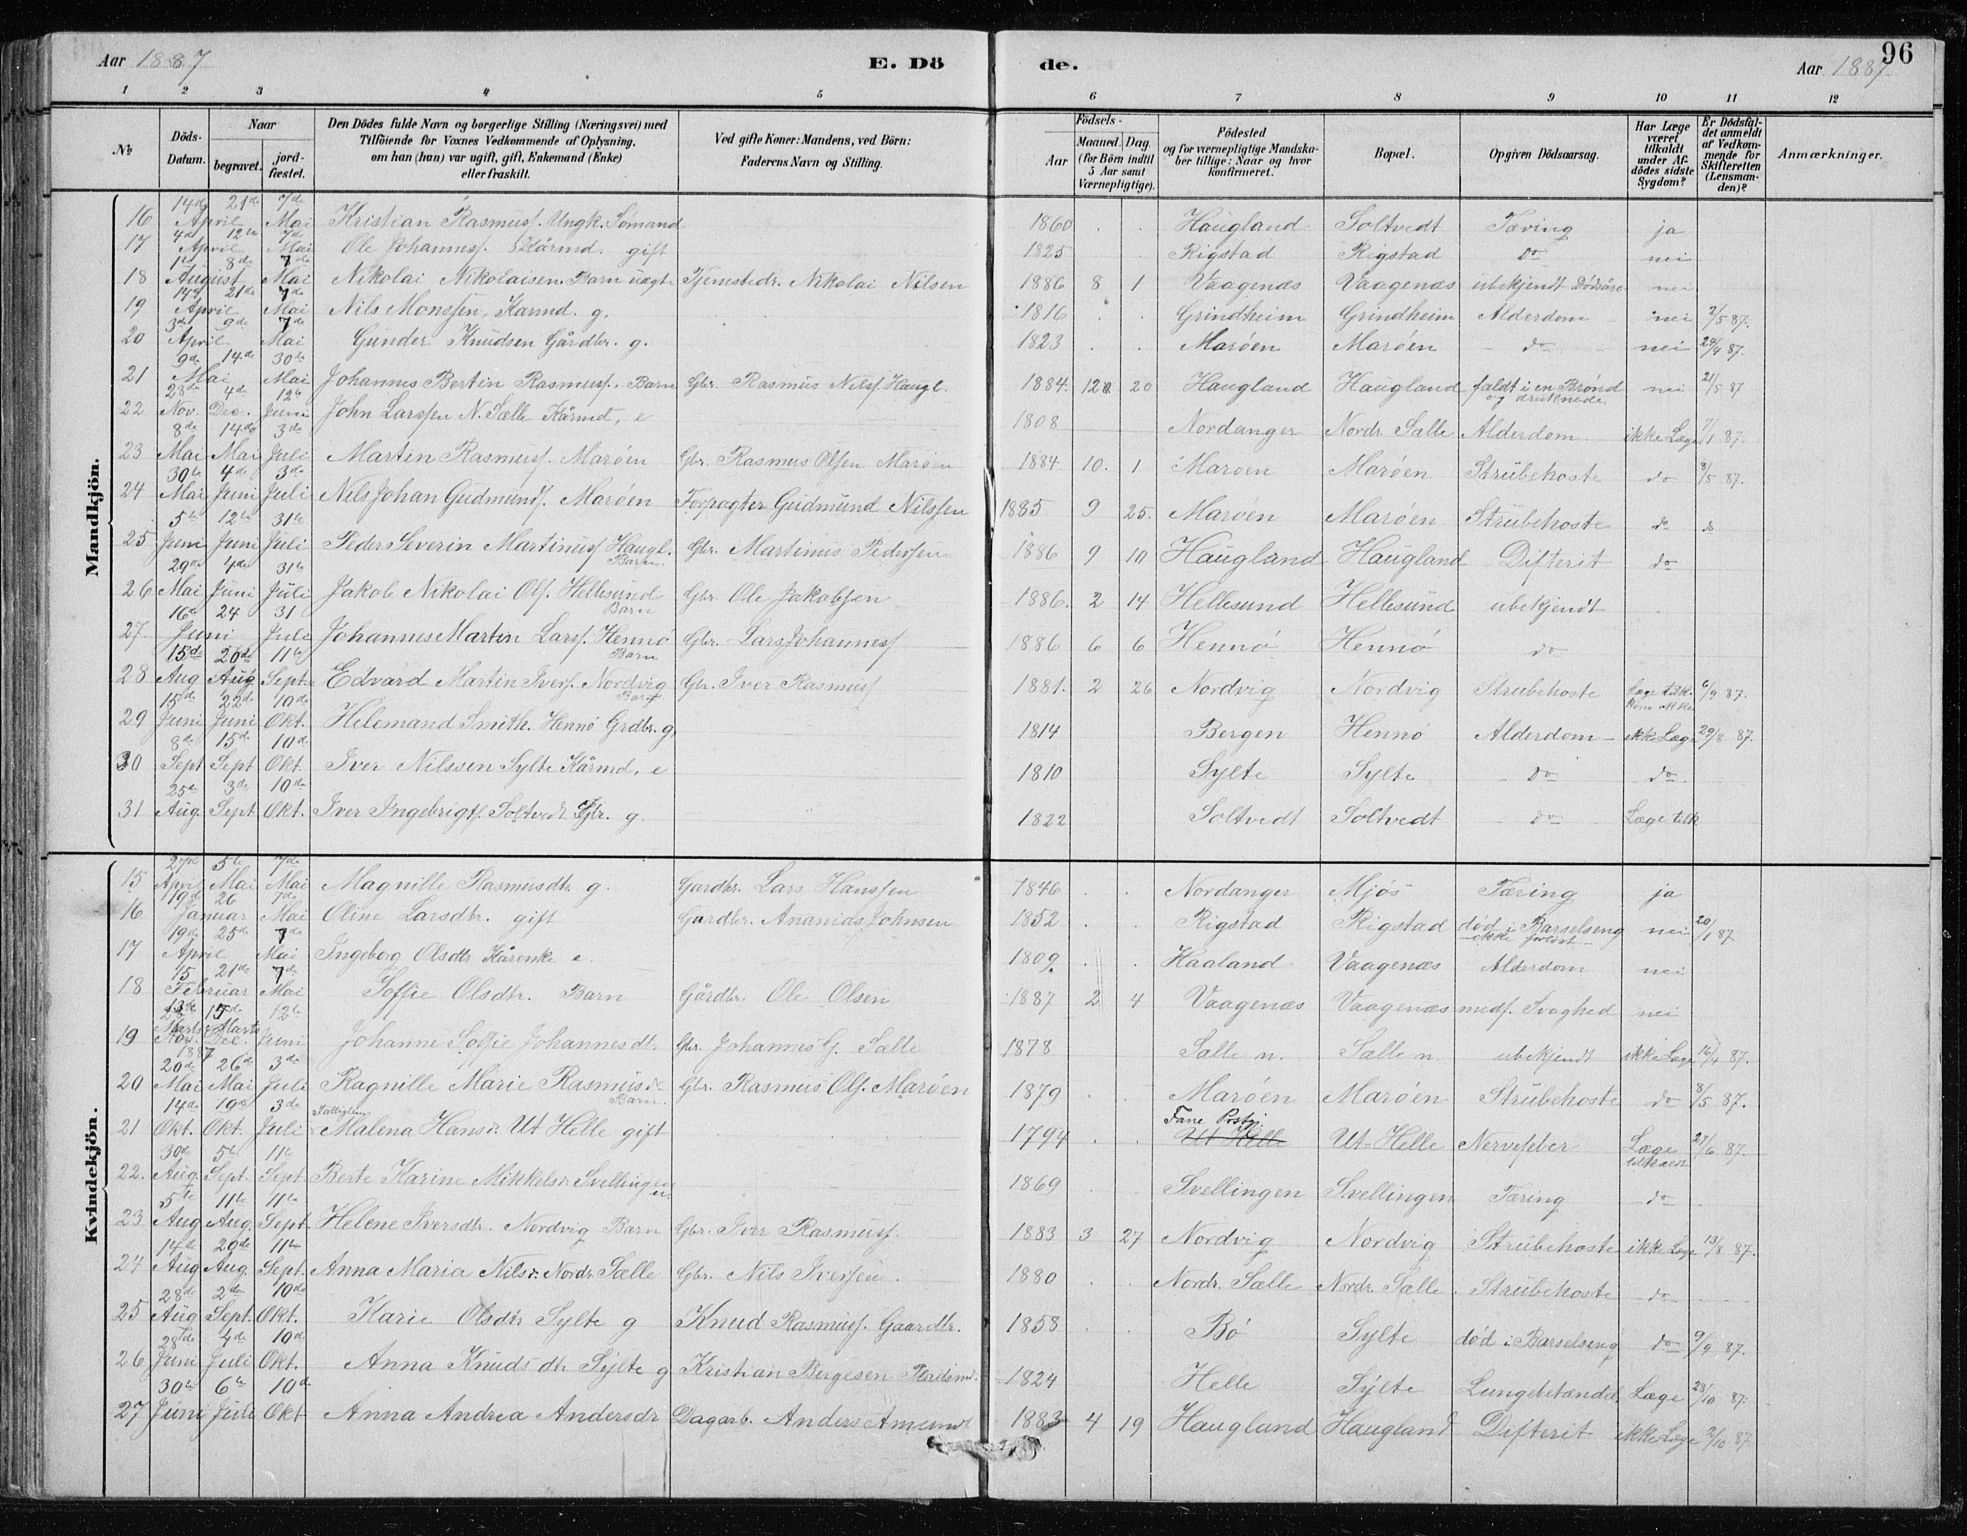 Aar 1887 E. Dö de. Aar 1887. 96
1 2 3 4 5 6 7 8 9 10 11 12
No Döds-Datum. Naar begravet. jordfæstet. Den Dödes fulde Navn og borgerlige Stilling (Næringsvei) med Tilföiende for Voxnes Vedkommende af Oplysning, om han (hun) var ugift, gift, Enkemand (Enke) eller fraskilt. Ved gifte Koner: Mandens, ved Börn: Faderens Navn og Stilling. Födsels- Aar Maaned. Dag. (for Börn indtil 5 Aar samt Værnepligtige). Födested og for værnepligtige Mandskaber tillige: Naar og hvor konfirmeret. Bopæl. Opgiven Dödsaarsag. Har Læge været tilkaldt under Afdödes sidste Sygdom? Er Dödsfaldet anmeldt af Vedkommende for Skifteretten (Lensmanden)? Anmærkninger.
Mandkjön.
16 14de April 21de 7de Mai Kristian Rasmuss. Ungk. Sömand 1860 Haugland Soltvedt Tæring ja
17 4de April 12te 7de Mai Ole Johanness. Kårmd. gift 1825 Rigstad Rigstad do nei
18 1ste August 8de 7de Mai Nikolai Nikolaisen Barn uægte Tjenestedr. Nikolai Nilsen 1886 8 1 Vaagenæs Vaagenæs ubekjendt Dödsårs nei
19 14de April 21de 7de Mai Nils Monssen, Karmd. g. 1816 Grindheim Grindheim Alderdom nei 2/5 87.
20 3de April 9de 7de Mai Gunder Knudsen Gårdbr. g. 1823 Marøen Marøen do nei 24/4 87.
21 9de Mai 14de 30te Mai Johannes Bertin Rasmuss. Barn Gbr. Rasmus Nilss. Haugl. 1884. 12 20 Haugland Haugland faldt i en Brønd og druknede nei 21/5 87
22 28de Nov. 4de Dec. 12te Juni John Larssen N. Sælle Kårmd. e 1808 Nordanger Nordr. Sælle Alderdom ikke Læge 7/1 87.
23 8de Mai 14de Mai 3de Juli Martin Rasmuss. Marøen Gbr. Rasmus Olsen Marøen 1884 10. 1 Marøen Marøen Strübehoste do 8/5 87.
24 30te Mai 4de Juni 3de Juli Nils Johan Gudmunds. Marøen Forpagter Gudmund Nilssen 1885 9 25. Marøen Marøen Strübehoste do do
25 5te Juni 12te Juni 31te Juli Peder Severin Martinuss. Haugl. Barn. Gbr. Martinus Pedersen 1886 9 10 Haugland Haugland Difterit do
26 29de Mai 4de Juni 31te Juli Jakob Nikolai Ols. Hellesund Barn Gbr. Ole Jakobsen 1886. 2 14 Hellesund Hellesund ubekjendt
27. 16de Juni 24 31 Juli Johannes Martin Larss. Hennø Barn Gbr. Lars Johanness 1886 6 6 Hennø Hennø do
28 15de Aug 20de Aug. 11te Sept. Edvard Martin Ivers. Nordvig Barn Gbr. Iver Rasmuss 1881. 2 26 Nordvig Nordvig Strubehoste Læge tilk. kom ikke 6/9 87.
29 15de Juni 22de Juni 10de Okt. Helemand Smith. Hennø Grdbr. g. 1814 Bergen Hennø Alderdom ikke Læge 29/8 87.
30 8de Sept 15de Sept 10de Okt. Iver Nilssen Sylte Kårmd. e 1810 Sylte Sylte do do
31 25de Aug. 3de Sept 10de Okt. Iver Ingebrigts. Soltvedt Gbr. g. 1822 Soltvedt Soltvedt do Læge tilk
Kvindekjön.
15 27de April 5te Mai 7de Mai Magnille Rasmusdtr g. Gardbr. Lars Hanssen 1846 Nordanger Mjøs Tæring ja
16 19de Januar 26 1de Mai Oline Larsdtr. gift Gardbr. Ananias Johnsen 1852 Rigstad Rigstad død i Barselseng ikke forløst nei 20/1 87.
17 19de April 25de 7de Mai Ingeborg Olsdtr Kårenke e. 1809 Haaland Vaagenæs Alderdom nei
18 15 Februar 21de 7de Mai Soffie Olsdtr. Barn Gårdbr. Ole Olsen 1887 2 4 Vaagenæs Vaagenæs medf. Svaghed nei
19 Nov. Dec. 12te Juni Johanne Soffie Johannesdt. Gbr. Johannes G. Sælle 1878 Salle n. Salle n ubekjendt ikke Læge 16/4 87.
20 20de Mai 26de Mai 3de Juli Ragnille Marie Rasmusdr Barn. Gbr. Rasmus Ols. Marøen 1879 Marøen Marøen Strübehoste do 8/5 87.
21 14de Okt. 19de Okt. 3de Juli Malena Hansdr. Ut Helle gift 1794 Fane Prstgj. Ut Helle Ut-Helle Nervefeber Læge tilkaldt 27/6 87.
22. 30te Aug. 5te Sept. 11te Sept Berte Karine Mikkelsdr Svellingen 1869 Svellingen Svellingen Tæring do
23 5te Aug 11te Aug. 11te Sept. Helene Iversdtr. Nordvig Barn Gbr. Iver Rasmuss. 1883 3 27 Nordvig Nordvig Strübehoste ikke Læge 13/8 87.
24 14de Aug 20de Aug. 11te Sept. Anna Maria Nilsdr. Nordr. Sælle Gbr. Nils Iversen. 1880 Nordr. Sælle Nordr. Salle Strübehoste do
25 28de Aug 2de Sept. 10de Okt. Karie Olsdtr Sylte g Knud Rasmuss. Gaardbr. 1858 Bø Sylte død i Barselseng do 9/9 87.
26 28de Juni 4de Juli 10de Okt. Anna Knudsdtr Sylte g Kristian Bergesen 1824 Helle Sylte Lungebetændel. Læge 23/10 87.
27 30te Juni 6te Juli 10de Okt Anna Andrea Andersdr Dagarb. Anders Amunds 1883 4 19 Haugland Haugland Difterit ikke Læge 2/10 87